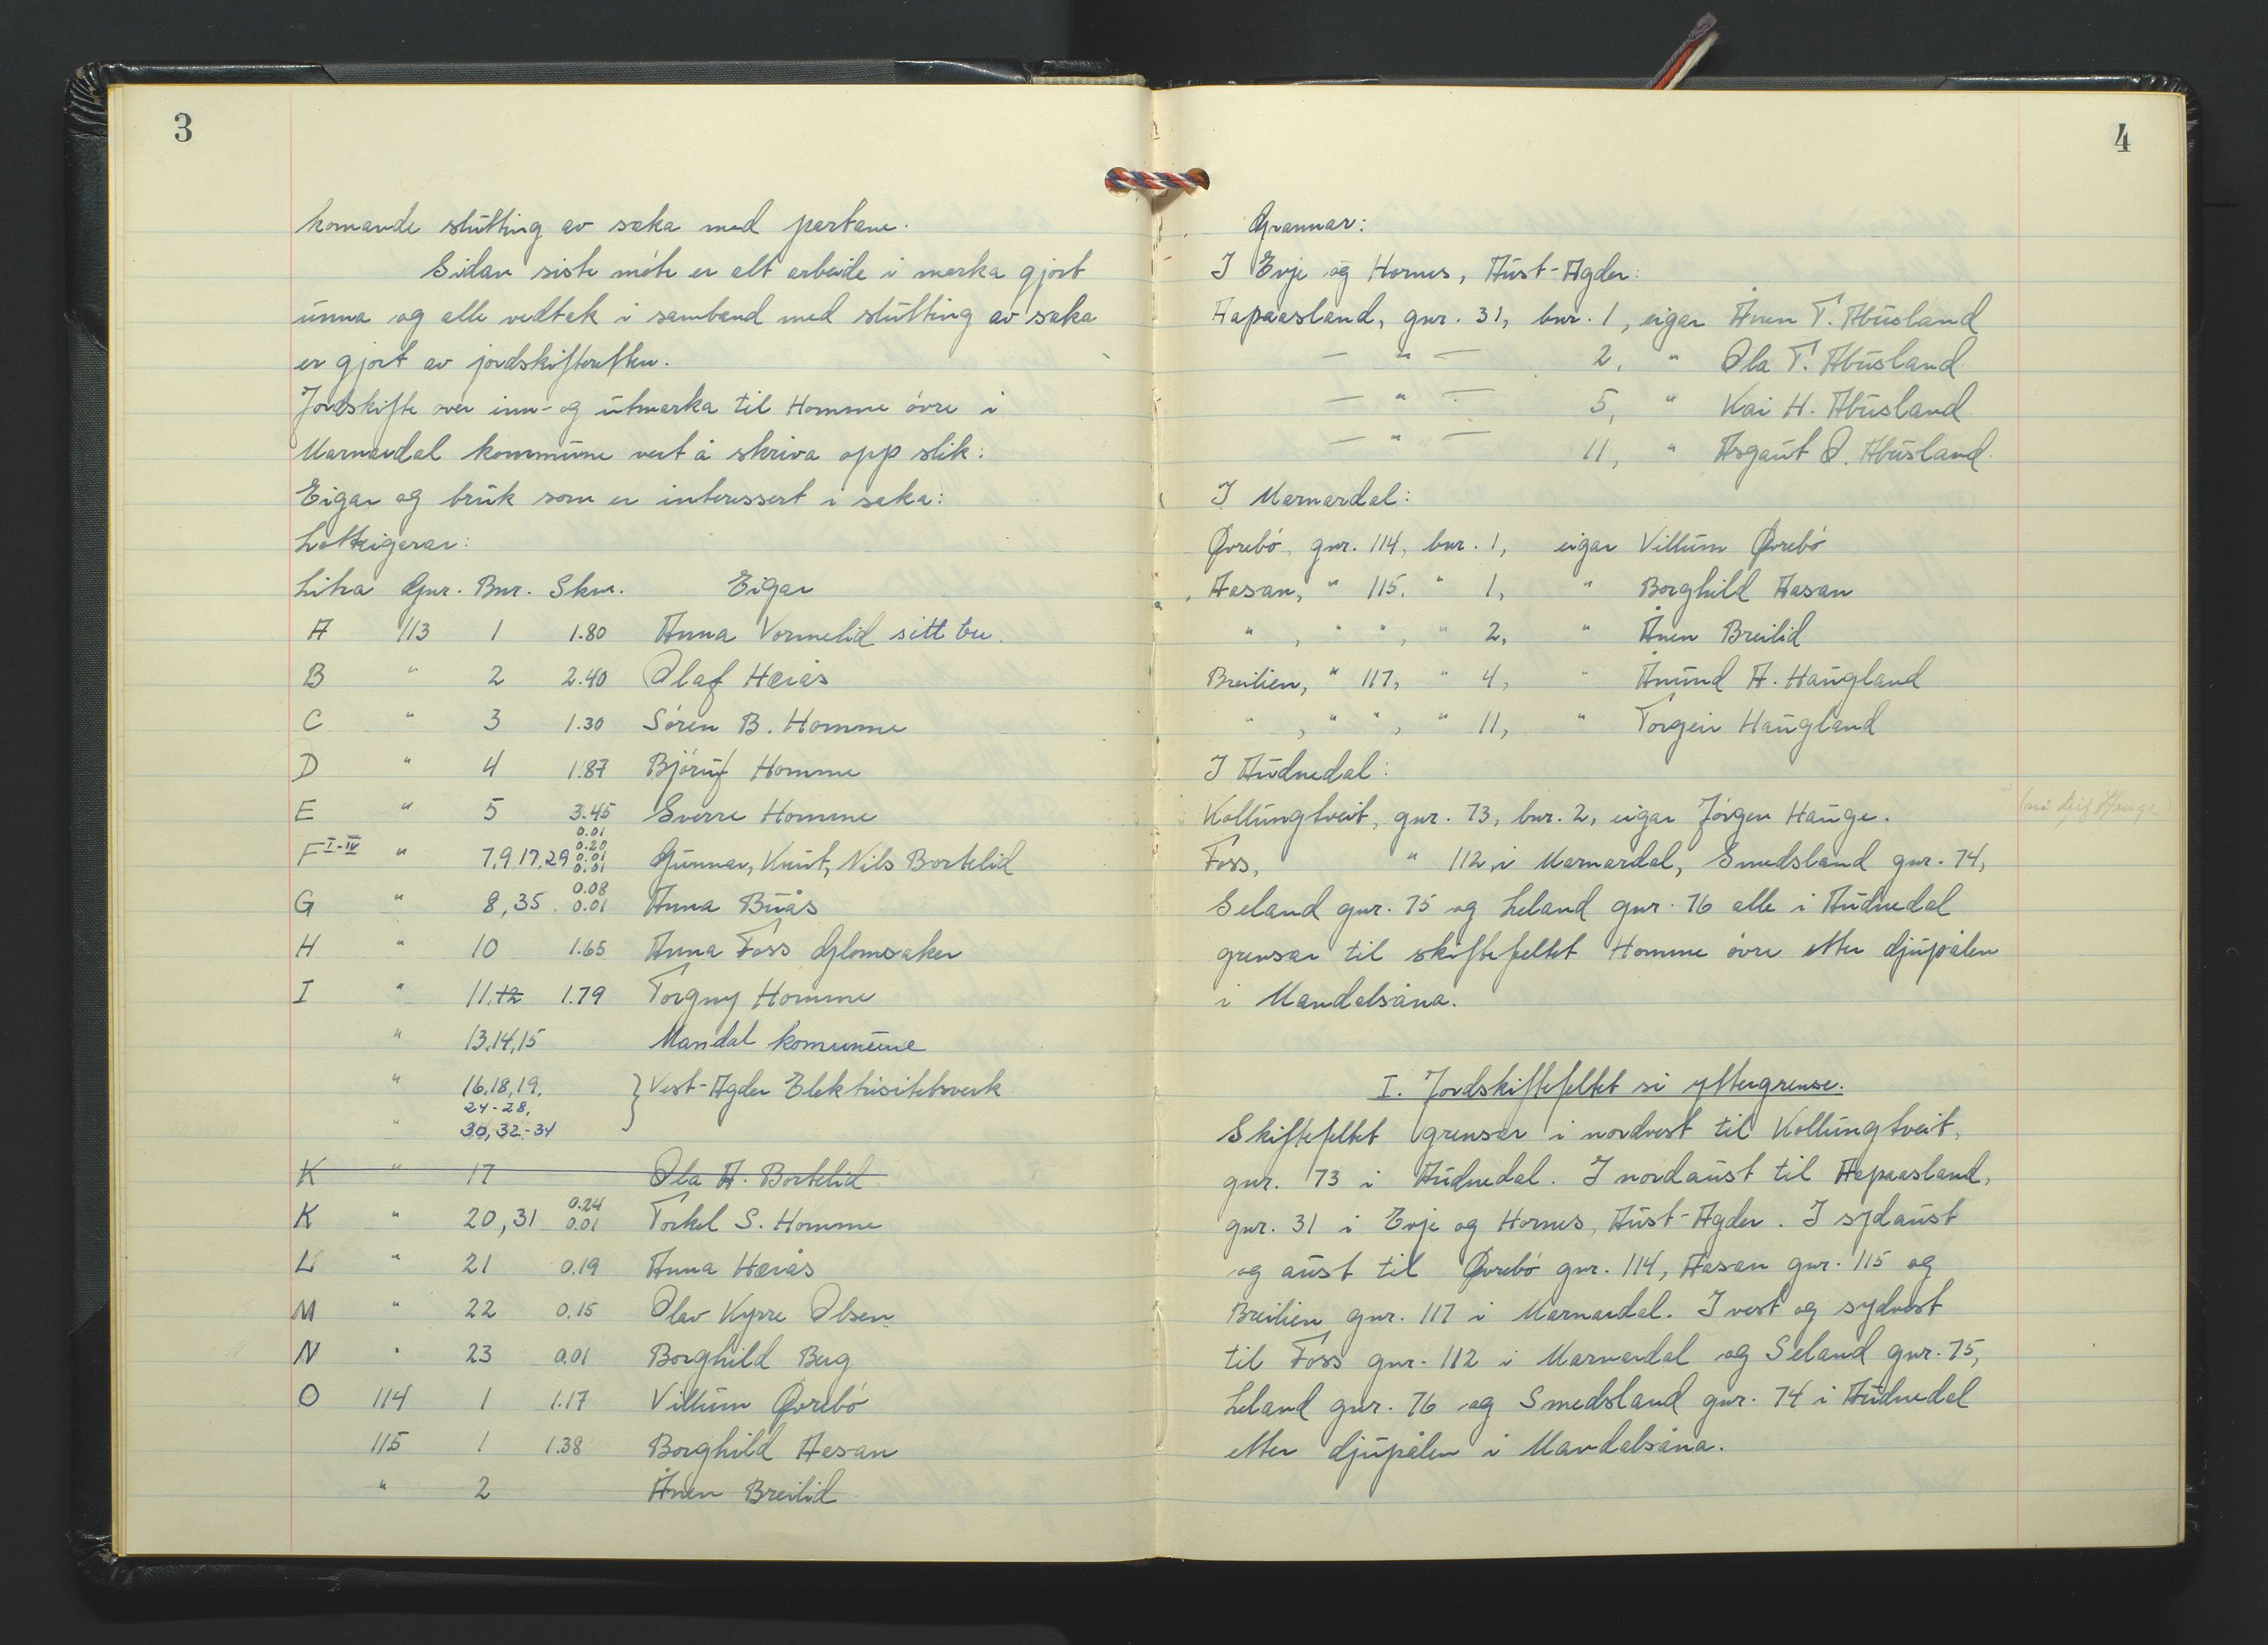 3
komande slutting av saka med partane.
Sidan siste møte er alt arbeide i marka gjort
unna og alle vedtak i samband med slutting av saka
er gjort av jordskifteretten.
Jordskifte over inn- og utmarka til Homme øvre i
Marnardal kommune vert å skriva opp slik:
Eigar og bruk som er interessert i saka:
Lotteigarar:
Litra Gnr. Bnr. Skm. Eigar
A 113 1 1.80 Anna Vormelid sitt bu.
B " 2 2.40 Olaf Høiås
C " 3 1.30 Søren B. Homme
D " 4 1.87 Bjørulf Homme
E " 5 3.45 Sverre Homme
F I-IV " 7,9,17,29 0.01 0.20 0.01 0.01 Gunnar, Knut, Nils Bortelid
G " 8,35. 0.08 0.01 Anna Buås
H " 10 1.65 Anna Foss Glomsaker
I " 11,12 1.79 Torgny Homme
" 13,14,15 Mandal kommune
" 16,18,19, } Vest-Agder Elektrisitetsverk
24-28,
" 30, 32-34
K " 17 Ola A. Bortelid
K " 20,31 0.24 0.01 Torkel S. Homme
L " 21 0.19 Anna Høiås
M " 22 0.15 Olav Kyrre Olsen
N " 23 0.01 Borghild Berg
O 114 1 1.17 Villum Øvrebø
115 1 1.38 Borghild Aasan
" 2 Ånen Breilid
4
Grannar:
I Evje og Hornes, Aust-Agder:
Aapaasland, gnr. 31, bnr. 1, eigar Ånen T. Abusland
— " — 2, " Ola T. Abusland
— " — 5, " Kai H. Abusland
— " — 11, " Asgaut O. Abusland.
I Marnardal:
Øvrebø, gnr. 114, bnr. 1, eigar Villum Øvrebø
Aasan, " 115, " 1, " Borghild Aasan
" , " ", " 2, " Ånen Breilid
Breilien, " 117, " 4, " Ånund A. Haugland
" , " ", " 11, " Torgeir Haugland
I Audnedal:
Kollungtveit, gnr. 73, bnr. 2, eigar Jørgen Hauge.
Foss, " 112 i Marnardal, Smedsland gnr. 74,
Seland gnr. 75 og Leland gnr. 76 alle i Audnedal
grensar til skiftefeltet Homme øvre etter djupålen
i Mandalsåna.
I. Jordskiftefeltet si yttergrense.
Skiftefeltet grensar i nordvest til Kollungtveit,
gnr. 73 i Audnedal. I nordaust til Aapaasland,
gnr. 31 i Evje og Hornes, Aust-Agder. I sydaust
og aust til Øvrebø gnr. 114, Aasan gnr. 115 og
Breilien gnr. 117 i Marnardal. I vest og sydvest
til Foss gnr. 112 i Marnardal og Seland gnr. 75,
Leland gnr. 76 og Smedsland gnr. 74 i Audnedal
etter djupålen i Mandalsåna.